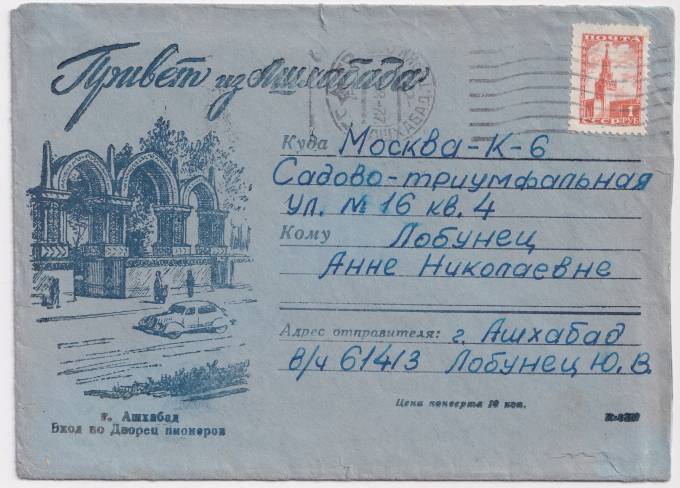 Привет из Ашхабада
ПОЧТА
1
РУБ
СССР
АШХАБАД
Куда Москва-К-6
Садово-триумфальная
ул. № 16 кв. 4
Кому Лобунец
Анне Николаевне
Адрес отправителя: г. Ашхабад
в/ч 61413 Лобунец Ю. В.
Цена конверта 10 коп.
г. Ашхабад
Вход во Дворец пионеров